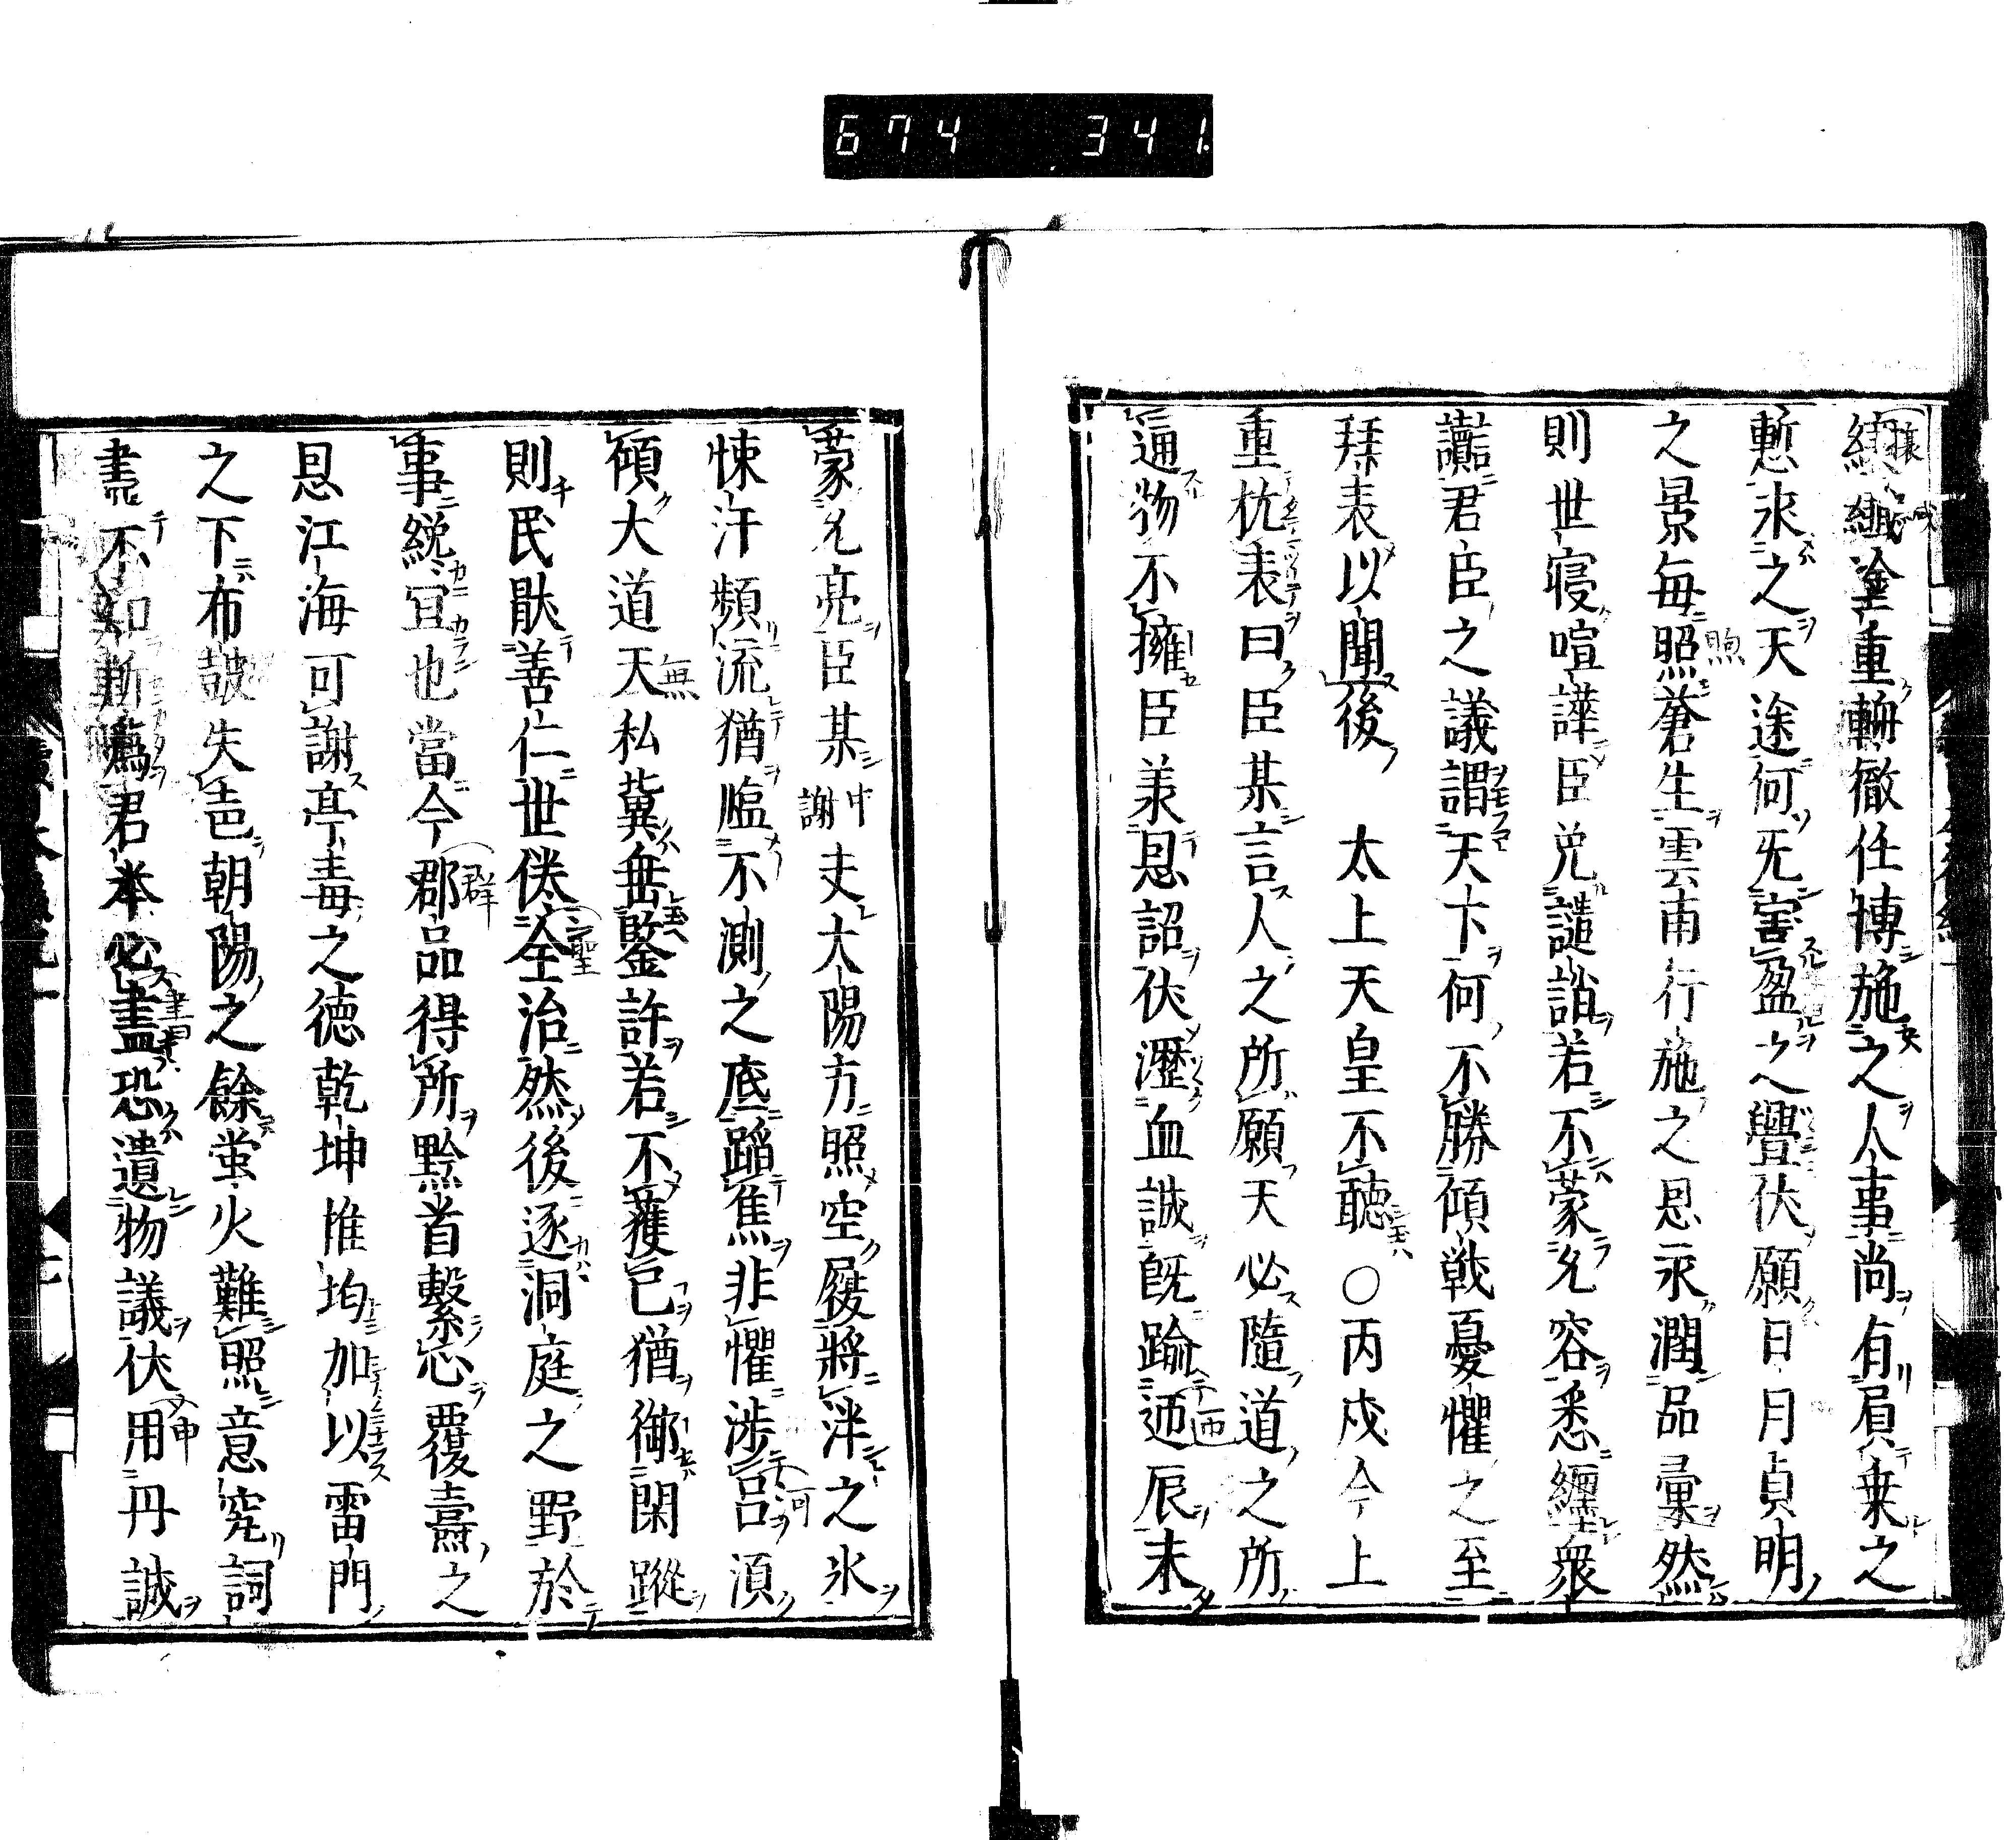 674 341
纁纎塗重軵徹任博施之人事尚有屓乗之
慙氷之天途何旡害盈之舋伏願日月貞明
之景毎照蒼生雲雨行施之恩永潤品彙然
則世寝喧譁臣免譴誚若不蒙允容悉纒衆
讟君臣之議謂天下何不勝傾戦憂懼之至
拜表以聞後 太上天皇不聽○丙戌今上
重抗表曰臣某言人之所願天必隨道之所
逼物不擁臣羕恩詔伏瀝血誠既踰迊辰未
蒙允亮臣某中謝夫大陽方照空履將泮之氷
悚汗頻流猶臨不測之底蹈焦非懼渉呂湏
傾大道天私冀無鑒許若不獲已猶御閑蹤
則民耿善仁世佚全治然後逐洞庭之野於
事縱宜也當今郡品得所黔首繫心覆燾之
恩江海可謝亭毒之徳乾坤惟均加以雷門
之下布皷失色朝陽之餘蛍火難照意窕詞
盡不知斯為君挙必盡恐遺物議伏用丹誠